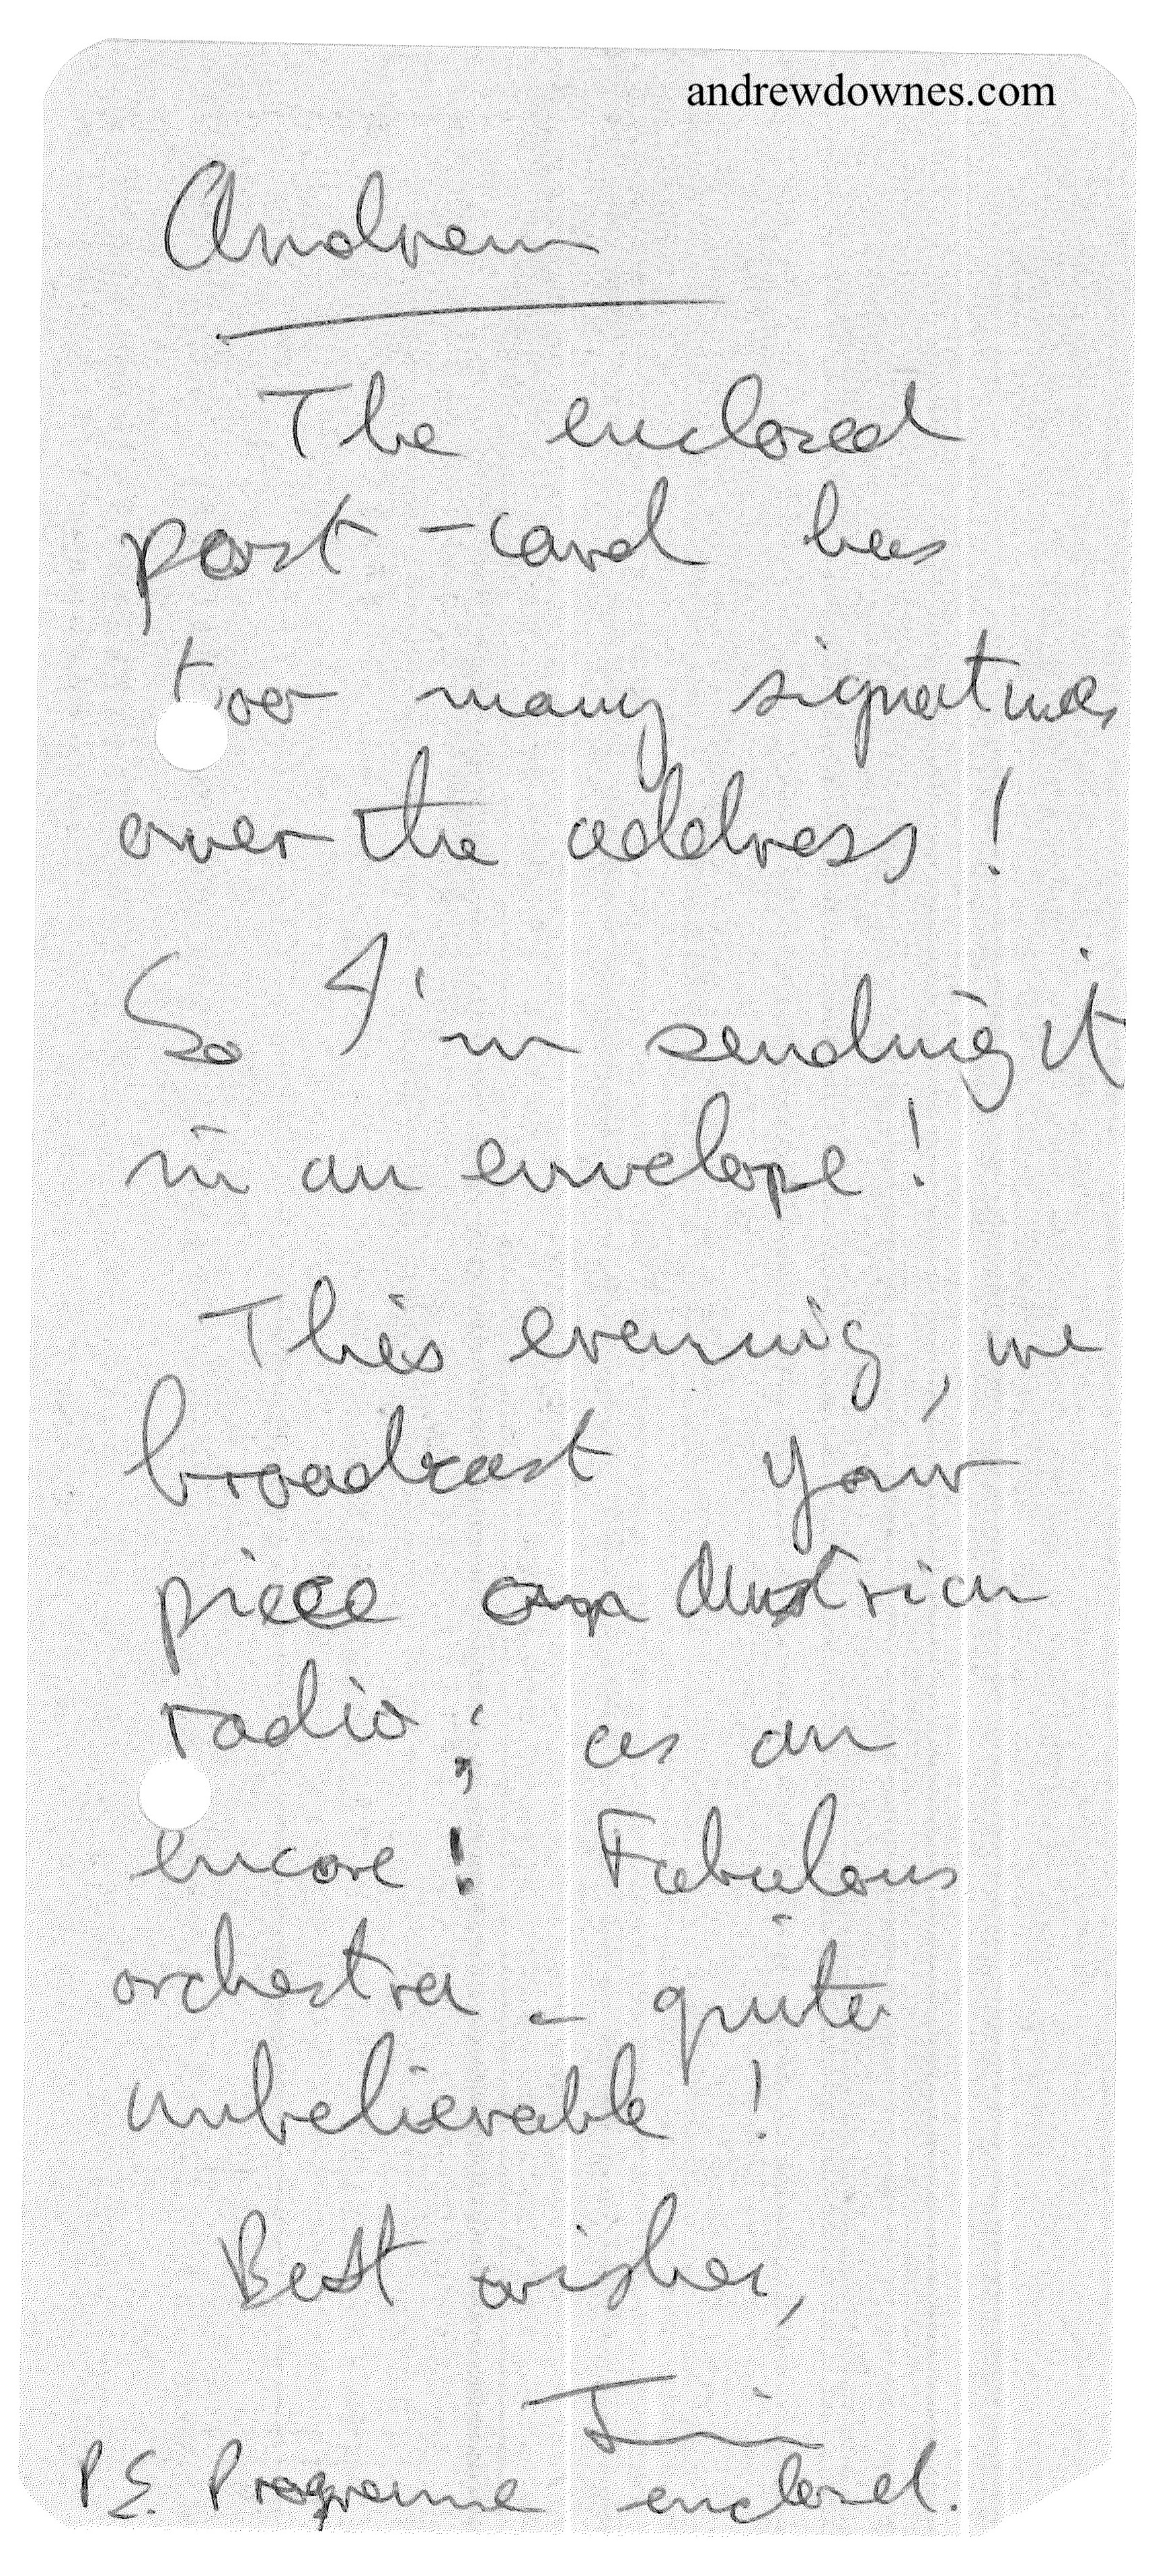 andrewdownes.com
Andrew
The enclosed
post-card has
too many signatures
over the address!
So I'm sending it
in an envelope!
This evening, we
broadcast your
piece on Austrian
radio; as an
encore! Fabulous
orchestra - quite
unbelievable!
Best wishes,
Jim
P.S. Programme enclosed.